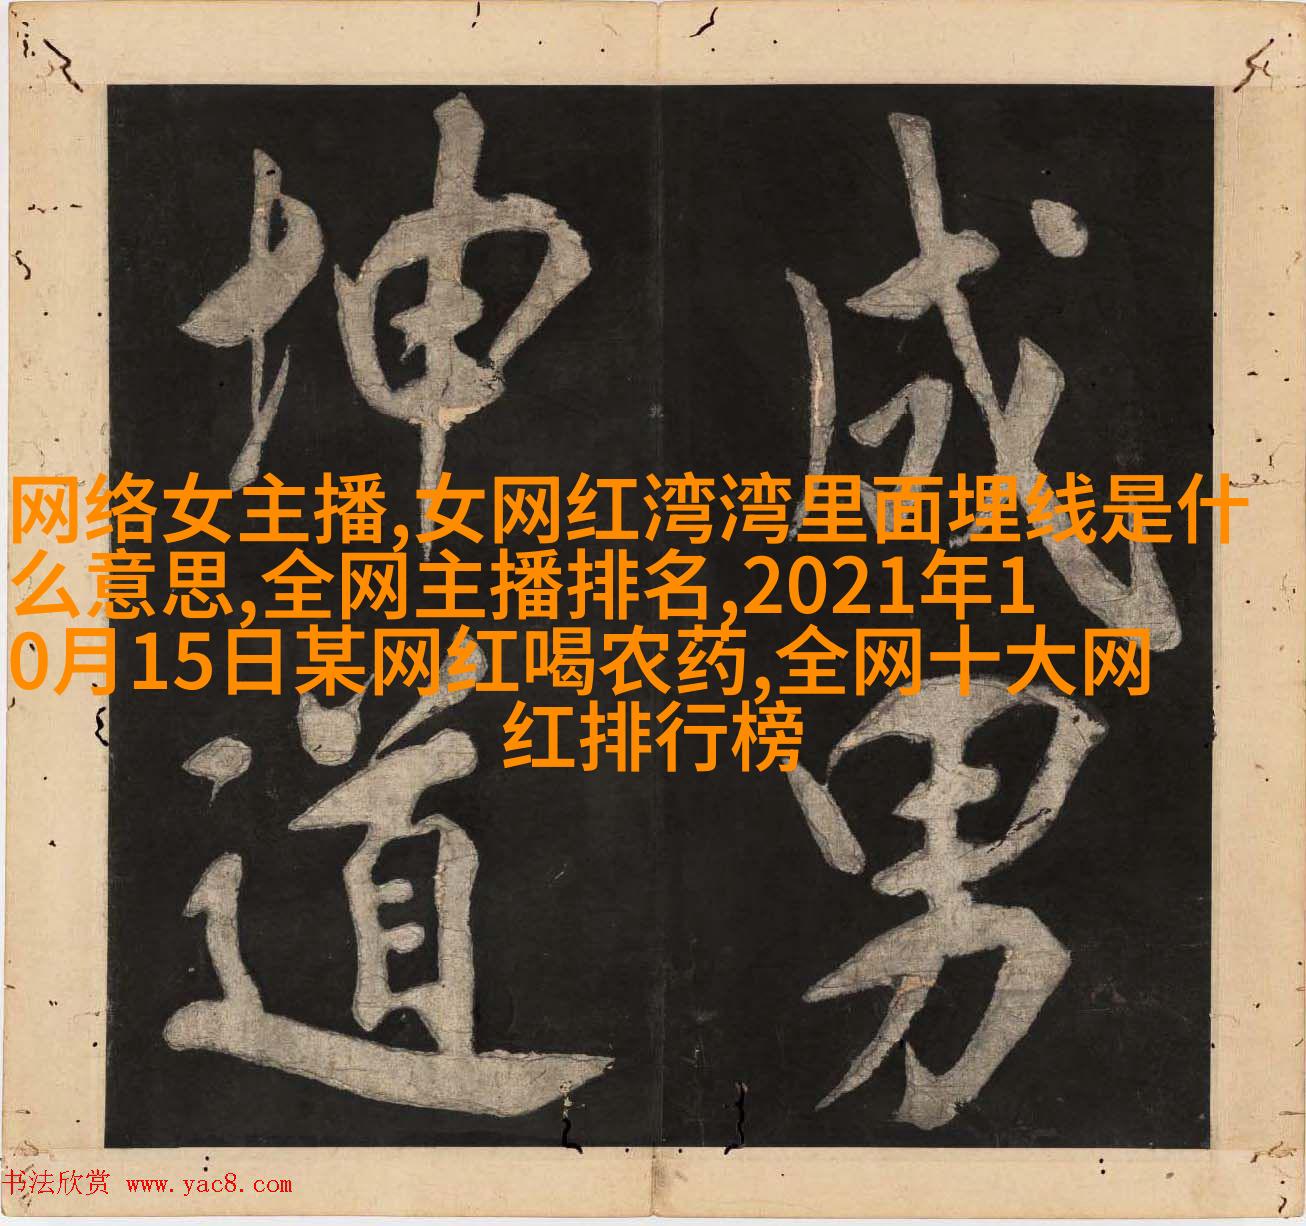 成男
坤道
网络女主播,女网红湾湾里面埋线是什
么意思,全网主播排名,2021年1
0月15日某网红喝农药,全网十大网
红排行榜
书法欣赏 www.yac8.com